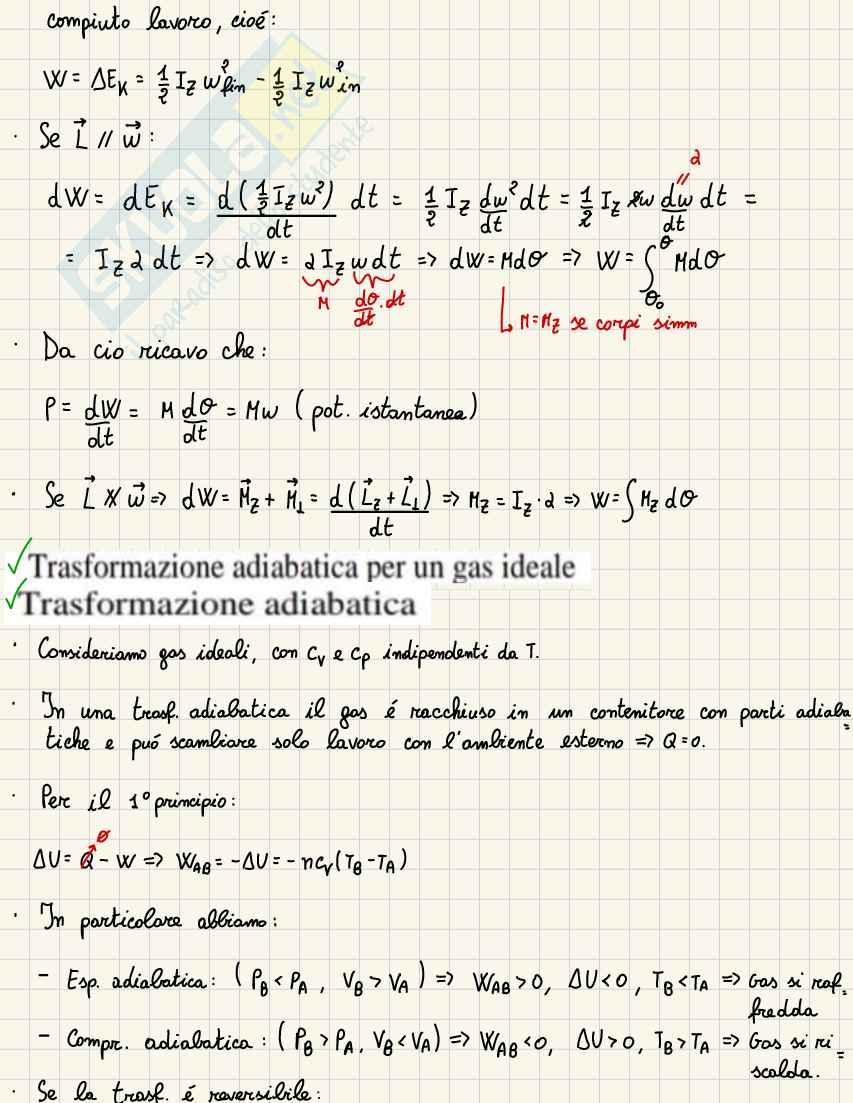 compiuto lavoro, cioé:
W = ΔE_K = 1/2 I_Z w²_fin - 1/2 I_Z w²_in
· Se L⃗ // w⃗ :
dW = dE_K = d(1/2 I_Z w²)/dt dt = 1/2 I_Z dw²/dt dt = 1/2 I_Z 2w dw/dt dt =
α
= I_Z α dt => dW = α I_Z w dt => dW = M dθ => W = ∫_θ₀^θ M dθ
M dθ/dt · dt
M = M_Z se corpi simm
· Da cio ricavo che:
P = dW/dt = M dθ/dt = Mw (pot. istantanea)
· Se L⃗ ∦ w⃗ => dW = M⃗_Z + M⃗_⊥ = d(L⃗_Z + L⃗_⊥)/dt => M_Z = I_Z · α => W = ∫ M_Z dθ
✓Trasformazione adiabatica per un gas ideale
✓Trasformazione adiabatica
· Consideriamo gas ideali, con c_V e c_P indipendenti da T.
· In una trasf. adiabatica il gas é racchiuso in un contenitore con parti adiaba=
tiche e puó scambiare solo lavoro con l'ambiente esterno => Q=0.
· Per il 1° principio:
0
ΔU = Q - W => W_AB = -ΔU = -nc_V(T_B - T_A)
· In particolare abbiamo:
- Esp. adiabatica: (P_B < P_A, V_B > V_A) => W_AB > 0, ΔU < 0, T_B < T_A => Gas si raf=
fredda
- Compr. adiabatica: (P_B > P_A, V_B < V_A) => W_AB < 0, ΔU > 0, T_B > T_A => Gas si ri=
scalda.
· Se la trasf. é reversibile:
SKUOLA.net
il paradiso dello studente